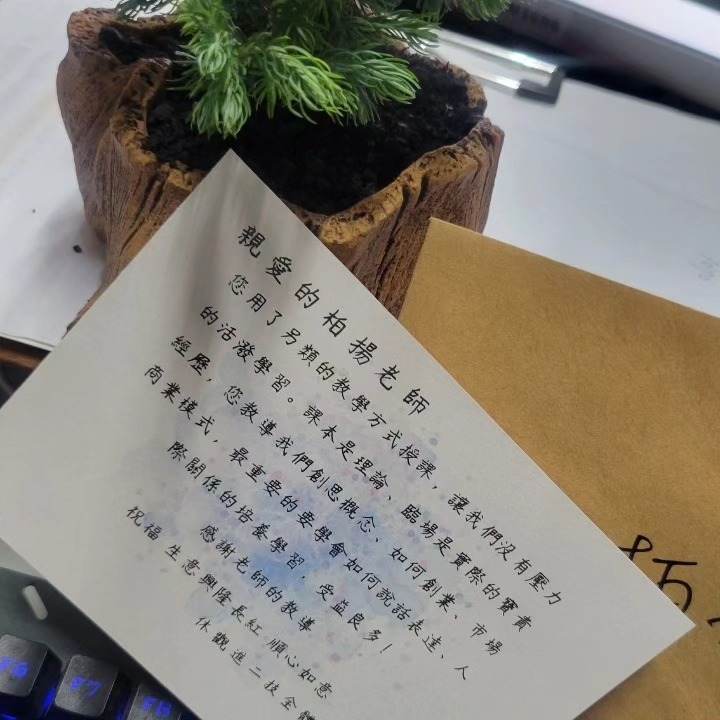 親愛的柏揚老師
您用了另類的教學方式授課，讓我們沒有壓力
的活潑學習。課本是理論、臨場是實際的寶貴
經歷，您教導我們創思概念、如何創業、市場
商業模式，最重要的要學會如何說話表達、人
際關係的培養學習，受益良多！
感謝老師的教導
祝福 生意興隆長紅 順心如意
休觀進二技全體
F6
F7
F8